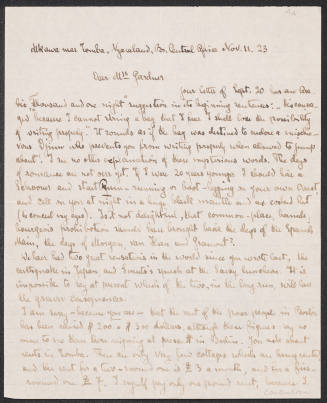 Mkawa near Zomba, Nyasaland, Br. Central Africa Nov. 11. 23
Dear Mrs Gardner
Your letter of Sept. 20 has an Ara
bic "thousand and one night" suggestion in its beginning sentences:
"because I cannot
bring a bag but I fear I shall lose the possibility
of writing properly." It sounds as if the bag was destined to enclose a mischie-
vous Djinn who prevents you from writing properly when allowed to jump
about. I see no other explanation of these mysterious words. The days
of romance are not over yet. If I were 20 years younger I should hire a
schooner and start Rum-running or boot-legging on your own Coast,
and call on you at night in a huge black mantle and a cocked hat
(to conceal my eyes). Is it not delightful, that common-place, banal,
bourgeois prohibition should have brought back the days of the Spanish
Main, the days of Morgan, van Horn and Gramont?
We have had two great sensations in the world since you wrote last, the
earthquake in Japan and Smuts's speech at the Savoy luncheon. It is
impossible to say at present which of the two, in the long run, will have
the graver consequences.
I am sorry - because you are - that the rent of the poor people in Boston
has been raised $ 200 - $ 300 dollars, although these figures by no
means to me than those reigning at present in Berlin. You ask about
rents in Zomba. There are only very few cottages which are being rented
and the rent for a two-roomed one is £ 3 a month, and for a five-
roomed one £ 7. I myself pay only one pound rent, because I